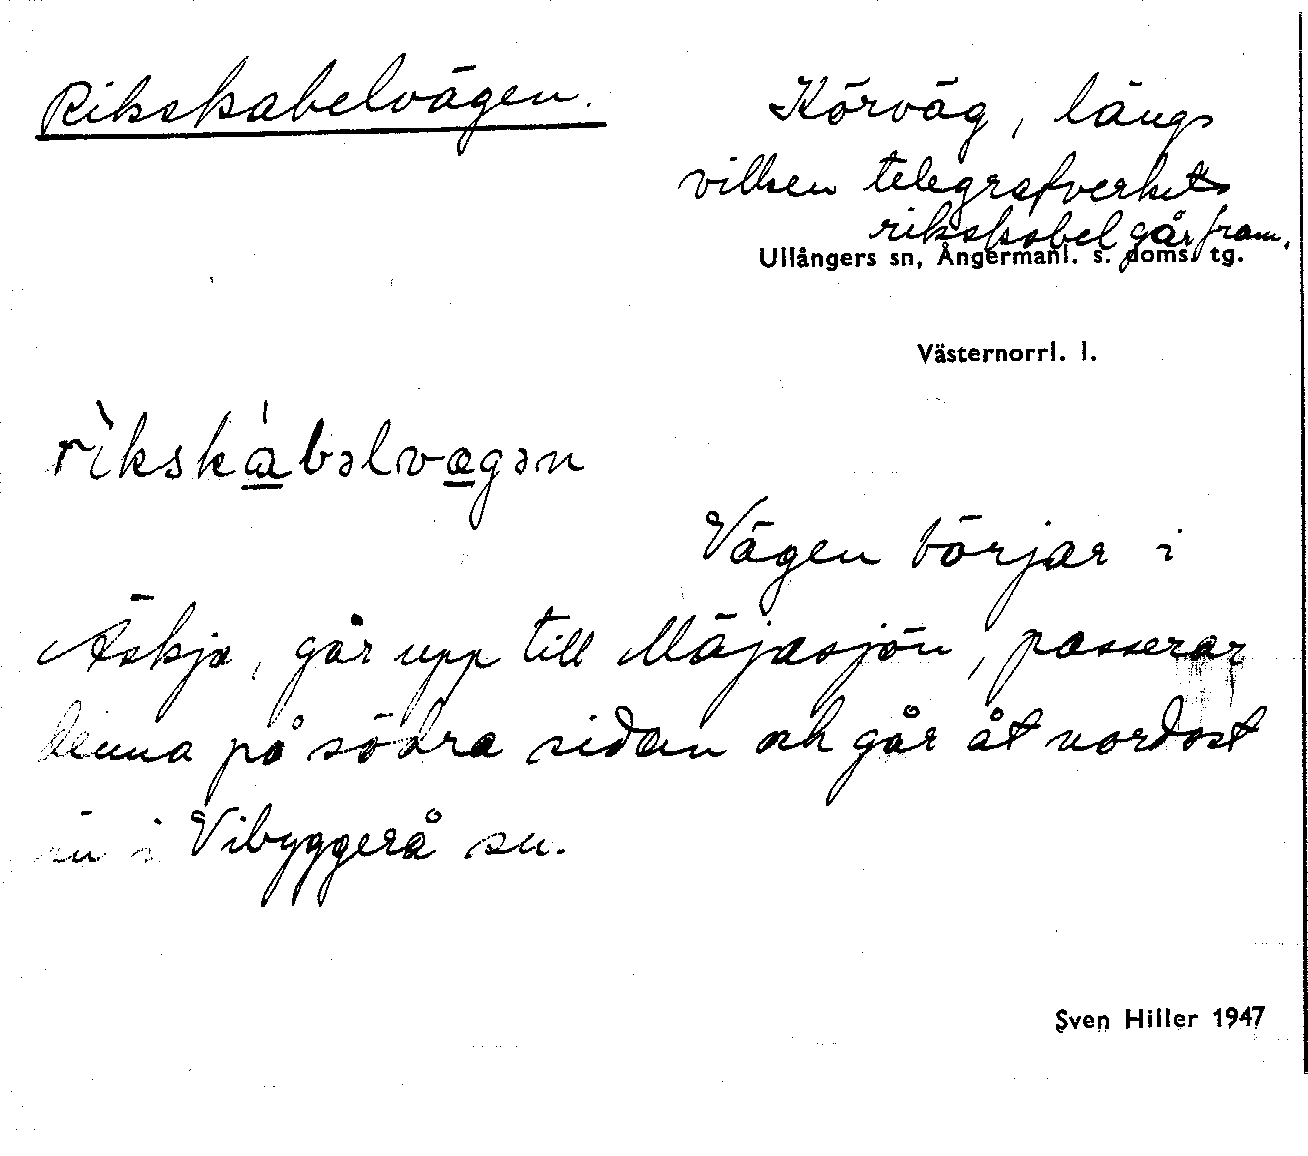 Rikskabelvägen.
Körväg, längs
vilken telegrafverkets
rikskabel går fram.
Ullångers sn, Ångermanl. s. doms. tg.
Västernorrl. l.
rìkská̲bəlvæ̲gən
Vägen börjar i
Äskja, går upp till Mäjasjön, passerar
denna på södra sidan och går åt nordost
in i Vibyggerå sn.
Sven Hiller 1947